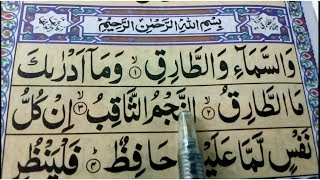 بِسْمِ اللهِ الرَّحْمٰنِ الرَّحِيْمِ
وَالسَّمَآءِ وَالطَّارِقِ ۙ۱ وَمَآ اَدْرٰىكَ
مَا الطَّارِقُ ۙ۲ النَّجْمُ الثَّاقِبُ ۙ۳ اِنْ كُلُّ
نَفْسٍ لَّمَّا عَلَيْهَا حَافِظٌ ؕ۴ فَلْيَنْظُرِ